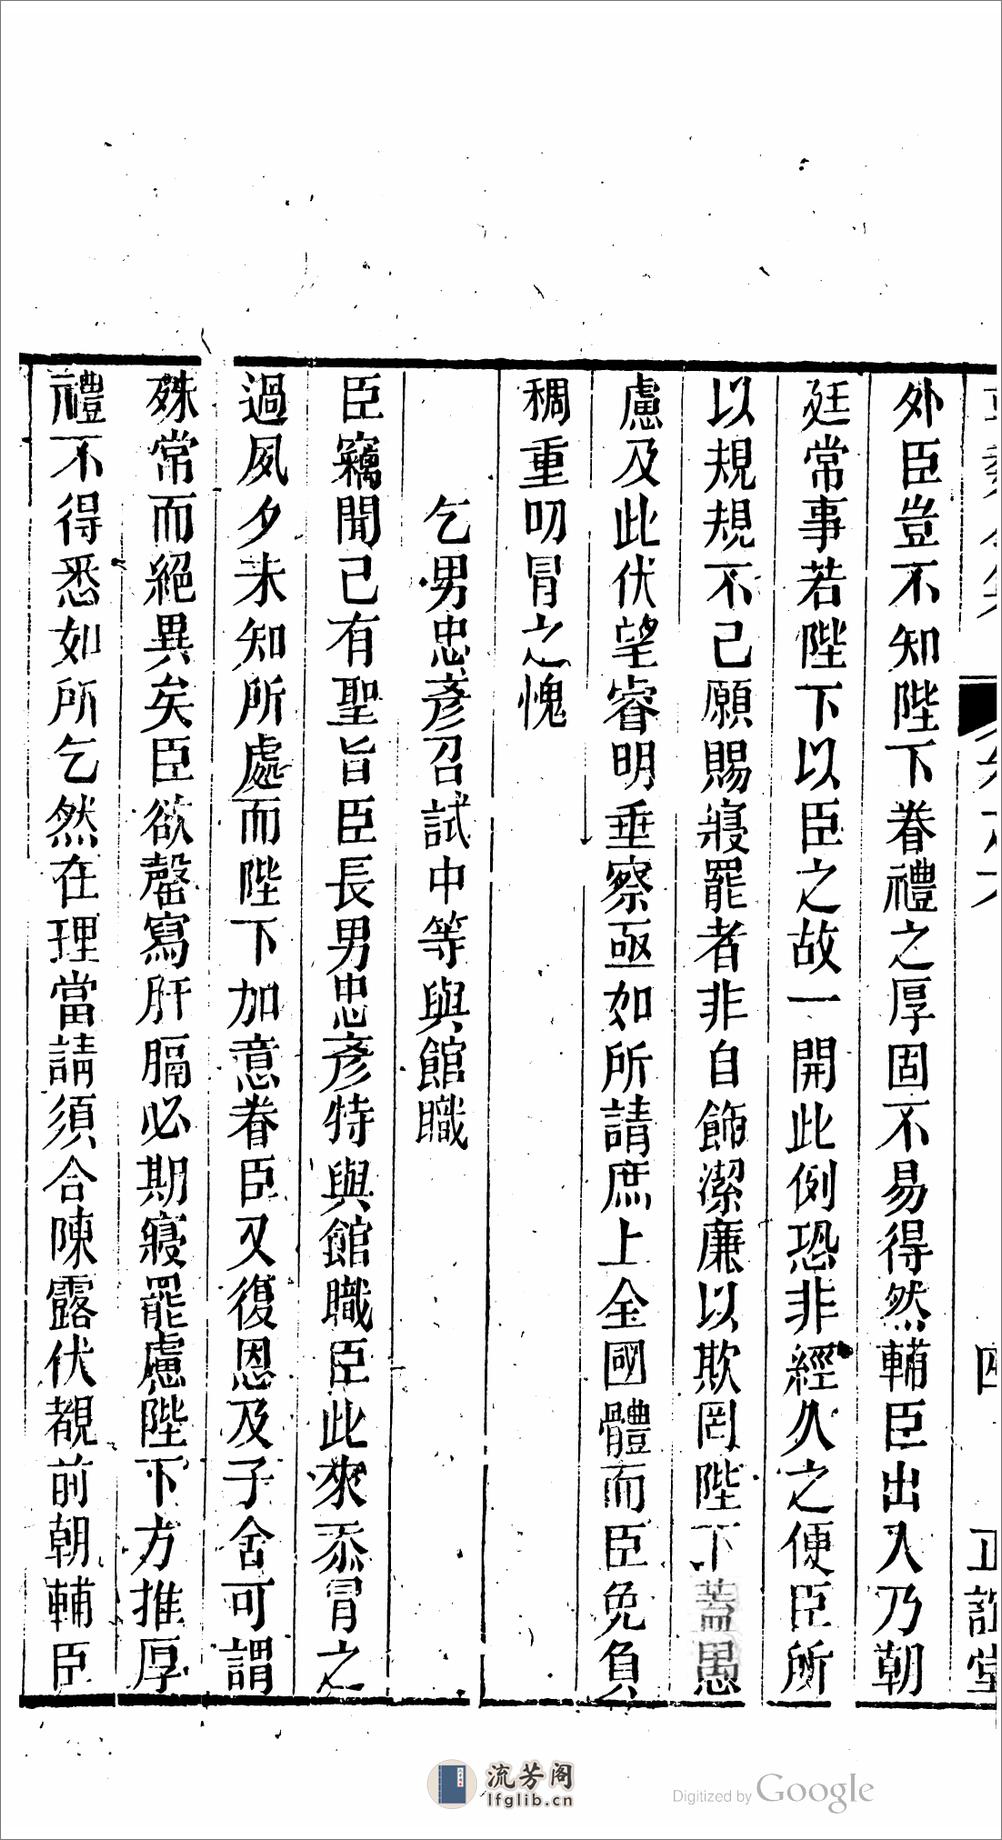 外臣豈不知陛下眷禮之厚固不易得然輔臣出入乃朝
廷常事若陛下以臣之故一開此例恐非經久之便臣所
以規規不己願賜寢罷者非自飾潔廉以欺罔陛下蓋愚
慮及此伏望睿明垂察亟如所請庶上全國體而臣免負
稠重叨冐之愧
乞男忠彥召試中等與館職
臣竊聞己有聖旨臣長男忠彥特與館職臣此來忝冐之
過夙夕未知所處而陛下加意眷臣又復恩及子舍可謂
殊常而絕異矣臣欲罄寫肝膈必期寢罷慮陛下方推厚
禮不得悉如所乞然在理當請須合陳露伏覩前朝輔臣
流芳阁
lfglib.cn
Digitized by Google